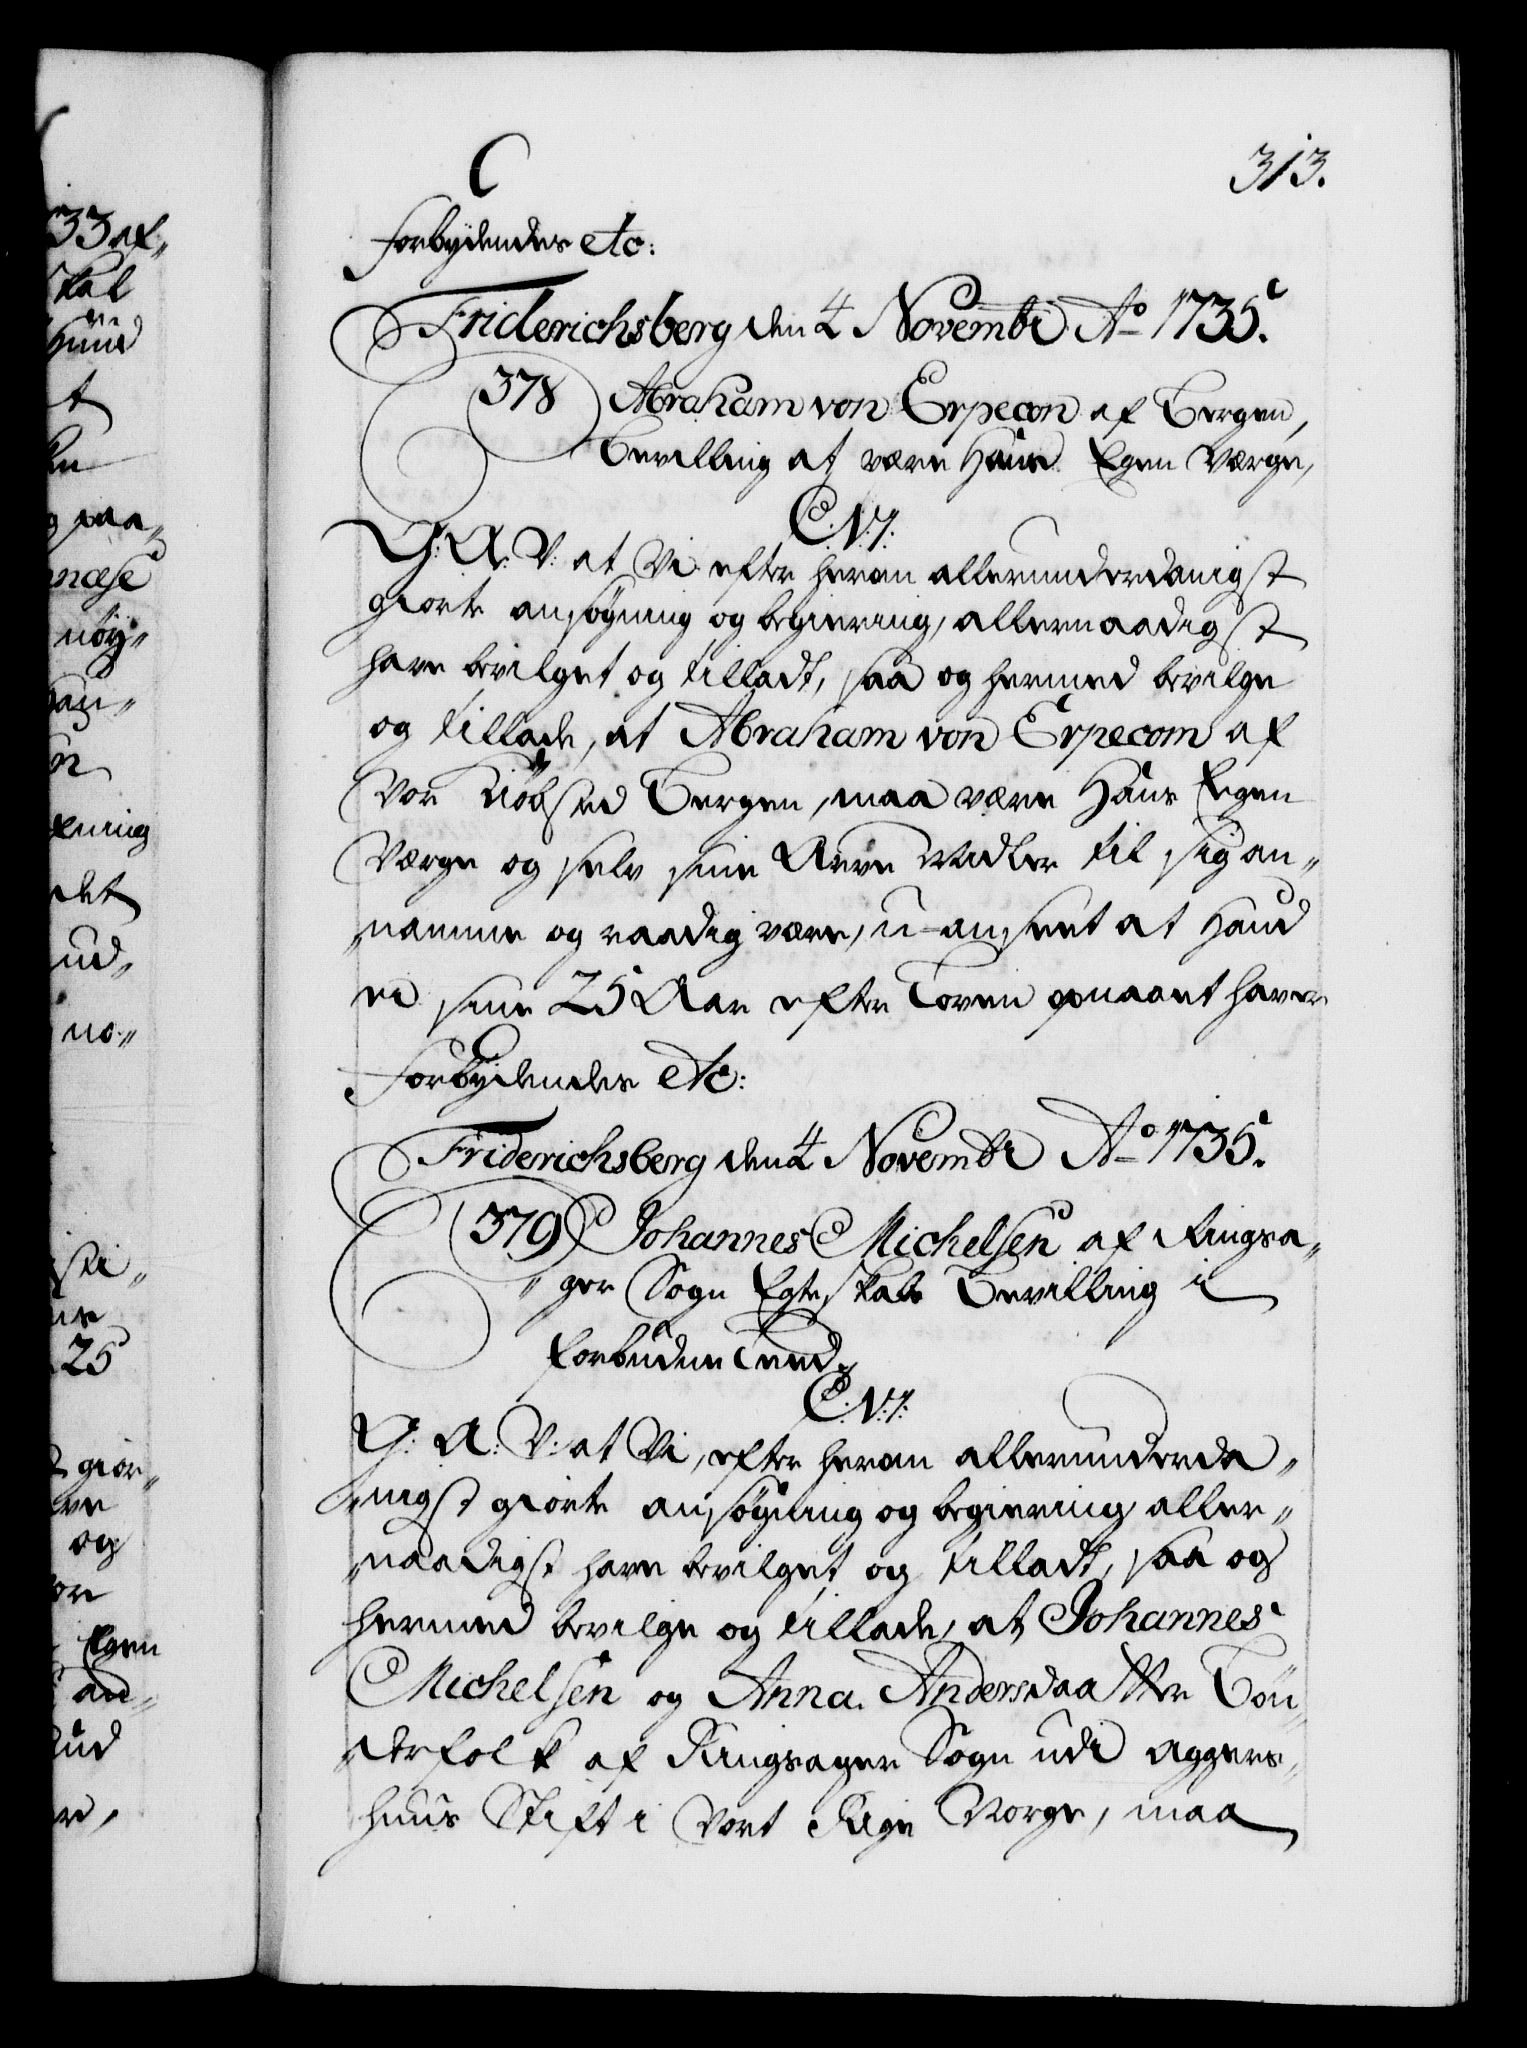 C
313.
forbydendes etc:
Friderichsberg den 4 Novembr: Ao 1735.
378 Abraham von Erpecon af Bergen,
Bevilling at være Hans Egen Værge,
C:V:7:
G: A: V: at Vi efter herom allerunderdanigst
giorte ansøgning og begiering, allernaadigst
have bevilget og tilladt, saa og hermed bevilge
og tillade, at Abraham von Erpecom af
Vor Kiøbsted Bergen, maa være Hans Egen
Værge og selv sine Arve Midler til sig an„
„namme og raadig være, u-anseet at Hand
ei sine 25 Aar efter Loven opnaaet haver
Forbydendes etc:
Friderichsberg den 4 Novembr: Ao 1735.
379 Johannes Michelsen af Ringsa„
„ger Sogn Egteskabs Bevilling i
forbuden Leed.
C:V:7:
G: A: V: at Vi, efter herom allerunderda„
„nigst giorte ansøgning og begiering aller„
„naadigst have bevilget og tilladt, saa og
hermed bevilge og tillade, at Johannes
Michelsen og Anna Andersdaatter Bøn„
„derfolk af Ringsager Sogn udi Aggers„
huus Stift i Vort Rige Norge, maa
33 af„
skal
t
g paa„
nøy„
det
ud„
no„
25
giør„
og
Egen
an„